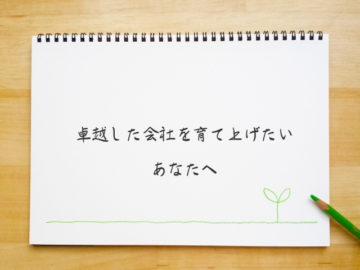 卓越した会社を育て上げたい
あなたへ